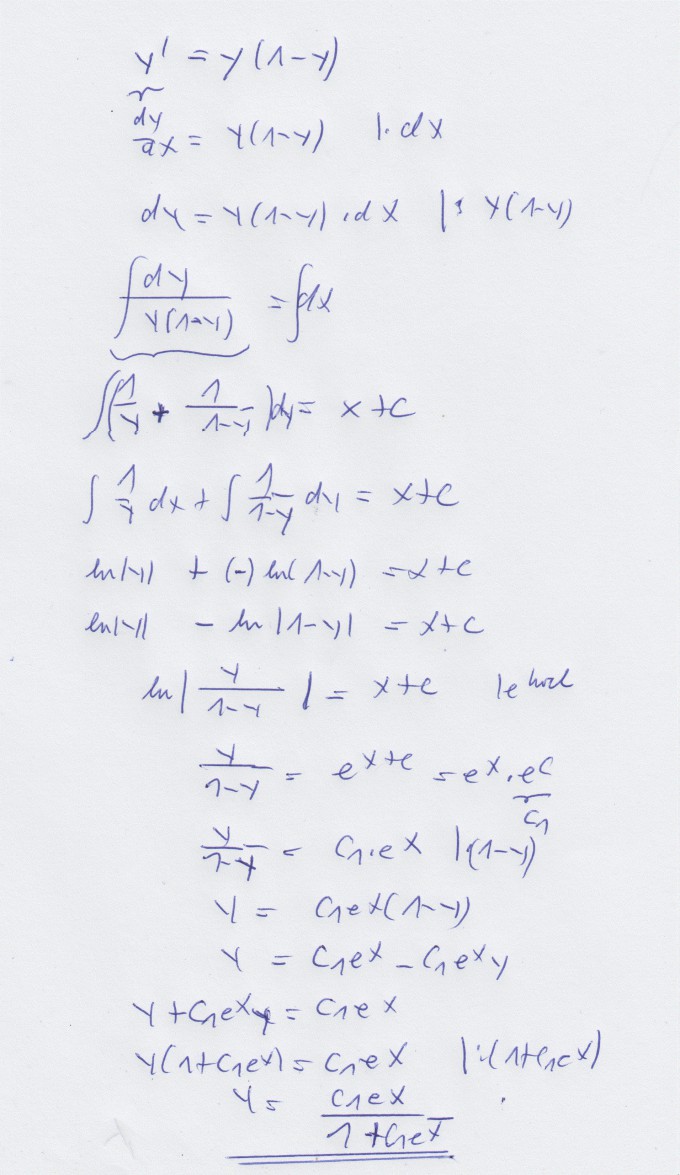 y' = y(1-y)
dy/dx = y(1-y) |· dx
dy = y(1-y) · dx |: y(1-y)
∫ dy/(y(1-y)) = ∫dx
∫(1/y + 1/(1-y))dy = x+c
∫ 1/y dx + ∫ 1/(1-y) dy = x+c
ln|y| + (-) ln(1-y) = x+c
ln|y| - ln|1-y| = x+c
ln| y/(1-y) | = x+c |e hoch
y/(1-y) = e^(x+c) = e^x · e^c
c₁
y/(1-y) = c₁·e^x |·(1-y)
y = c₁e^x(1-y)
y = c₁e^x - c₁e^x y
y + c₁e^x y = c₁e^x
y(1+c₁e^x) = c₁e^x |:(1+c₁e^x)
y = c₁e^x/(1+c₁e^x)